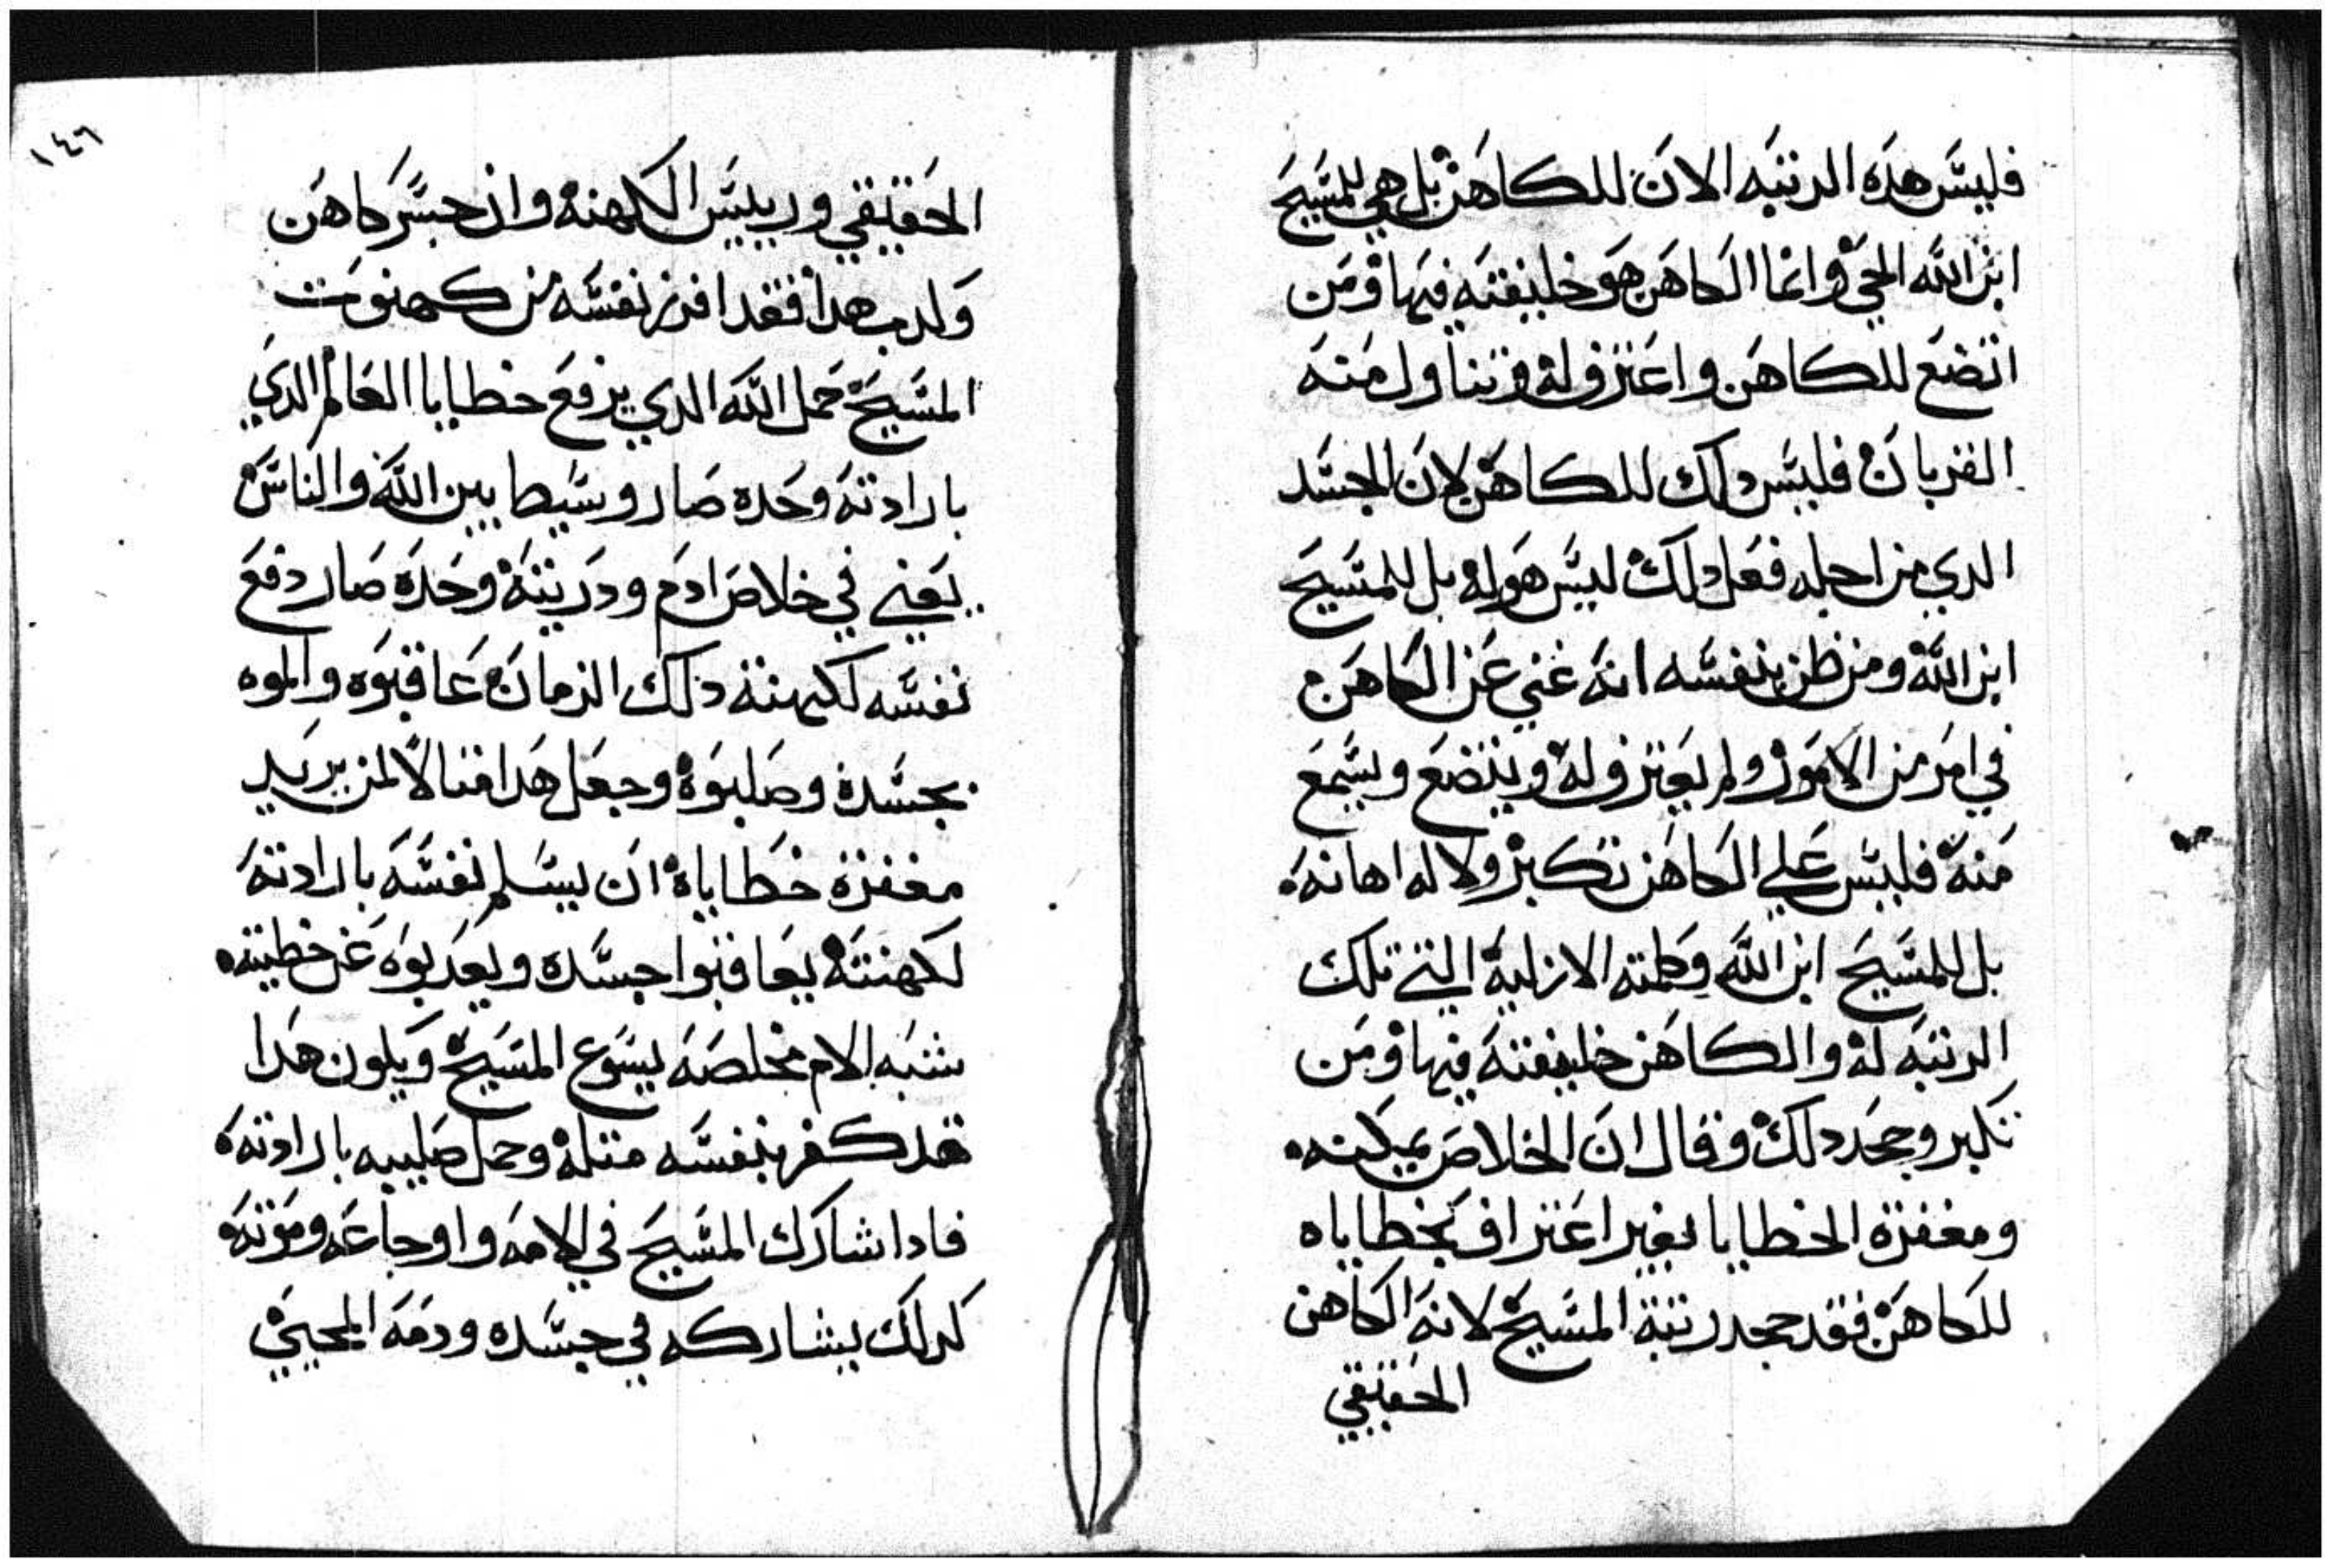 فليس هده الرتبه الان للكاهن بل هي للمسيح
ابن الله الحي وانما الكاهن هو خليفته فيها ومن
اتضع للكاهن واعترف له وتناول منه
القربان فليس دلك للكاهن لان الجسد
الدي من اجله فعل دلك ليس هو له بل للمسيح
ابن الله ومن ظن بنفسه انه غني عن الكاهن
في امر من الامور ولم يعترف له ويتضع ويسمع
منه فليس علي الكاهن تكبر ولا له اهانه
بل للمسيح ابن الله وكلمته الازلية التي تلك
الرتبه له والكاهن خليفته فيها ومن
تكبر وجحد دلك وقال ان الخلاص يمكنه
ومغفرة الخطايا بغير اعتراف بخطاياه
للكاهن فقد جحد رتبة المسيح لانه الكاهن
الحقيقي
١٤٦
الحقيقي وريييس الكهنه وان جسر كاهن
وكدب هدا فقد افرز نفسه من كهنوت
المسيح حمل الله الدي يرفع خطايا العالم الدي
بارادته وحده صار وسيطا بين الله والناس
يعني في خلاص ادم ودريته وحده صار دفع
نفسه لكهنة ذلك الزمان عاقبوه والموه
بجسده وصلبوه وجعل هدا متالا لمن يريد
مغفرة خطاياه ان يسلم نفسه بارادته
لكهنته يعاقبوا جسده ويعدبوه عن خطيته
شبه الام مخلصه يسوع المسيح ويكون هدا
قد كفر بنفسه متله وحمل صليبه بارادته
فادا شارك المسيح في الامه واوجاعه وموته
كدلك يشاركه في جسده ودمه المحيي